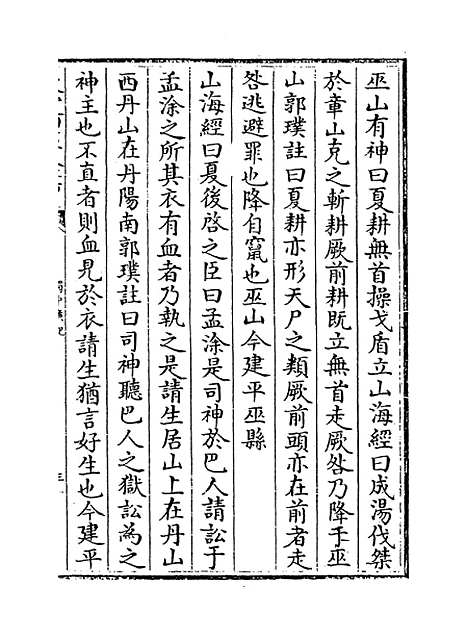 巫山有神曰夏耕無首操戈盾立山海經曰成湯伐桀
於章山克之斬耕厥前耕既立無首走厥咎乃降于巫
山郭璞註曰夏耕亦形天尸之類厥前頭亦在前者走
咎逃避罪也降自竄也巫山今建平巫縣
山海經曰夏後啓之臣曰孟涂是司神於巴人請訟于
孟涂之所其衣有血者乃執之是請生居山上在丹山
西丹山在丹陽南郭璞註曰司神聽巴人之獄訟為之
神主也不直者則血見於衣請生猶言好生也今建平